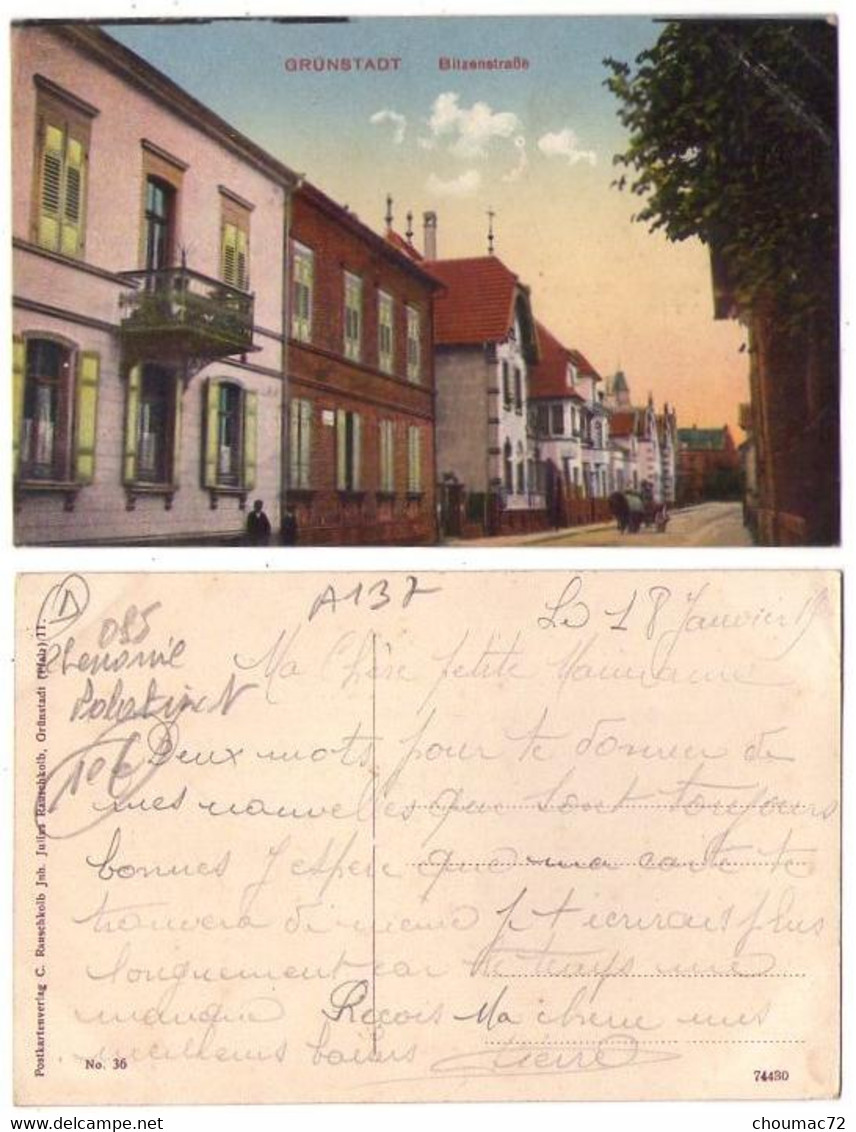 GRÜNSTADT Bitzenstraße
A137
Le 18 Janvier 19
D
Rhenanie
Palatinat
10 €
Ma Chère petite Maimaine
Deux mots pour te donner de
mes nouvelles que sont toujours
bonnes J espere que ma carte te
trouvera de meme je t ecrirais plus
longuement car le temps me
manque Recois Ma cherie mes
meilleurs baisers Pierre
Postkartenverlag C. Rauschkolb Jnh. Julius Rauschkolb, Grünstadt (Pfalz) 11.
No. 36
74430
choumac72